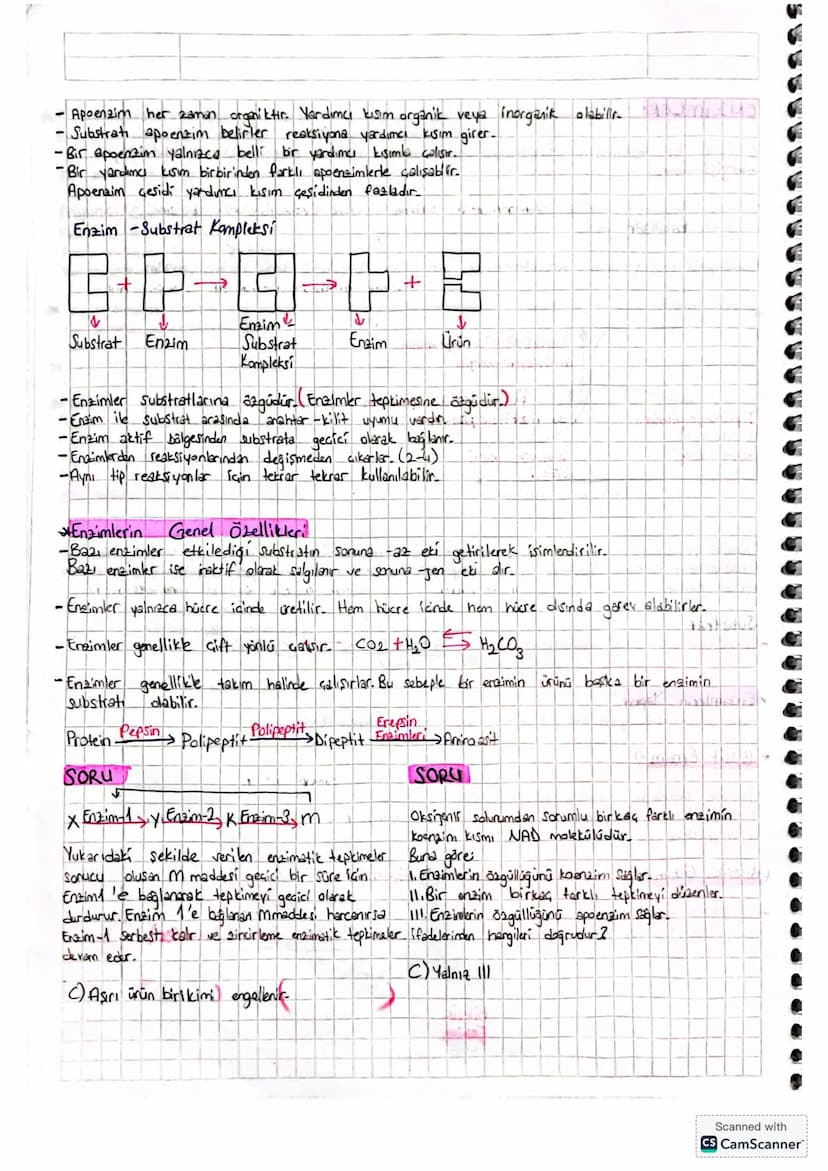 - Apoenzim her zaman organiktir. Yardımcı kısım organik veya inorganik olabilir.
- Substratı apoenzim belirler reaksiyona yardımcı kısım girer.
- Bir apoenzim yalnızca belli bir yardımcı kısımla çalışır.
- Bir yardımcı kısım birbirinden farklı apoenzimlerle çalışabilir.
Apoenzim çeşidi yardımcı kısım çeşidinden fazladır.
Enzim - Substrat Kompleksi
+ → → +
Substrat Enzim Enzim - Substrat Kompleksi Enzim Ürün
- Enzimler substratlarına özgüdür. (Enzimler tepkimesine özgüdür.)
- Enzim ile substrat arasında anahtar-kilit uyumu vardır.
- Enzim aktif bölgesinden substrata geçici olarak bağlanır.
- Enzimlerden reaksiyonlarından değişmeden çıkarlar. (2-4)
- Aynı tip reaksiyonlar için tekrar tekrar kullanılabilir.
*Enzimlerin Genel Özellikleri
- Bazı enzimler etkilediği substratın sonuna -az eki getirilerek isimlendirilir.
Bazı enzimler ise inaktif olarak salgılanır ve sonuna -jen eki alır.
- Enzimler yalnızca hücre içinde üretilir. Hem hücre içinde hem hücre dışında görev alabilirler.
- Enzimler genellikle çift yönlü çalışır. CO2 + H2O ⇆ H2CO3
- Enzimler genellikle takım halinde çalışırlar. Bu sebeple bir enzimin ürünü başka bir enzimin
substratı olabilir.
Protein Pepsin → Polipeptit Polipeptit → Dipeptit Erepsin Enzimleri → Amino asit
SORU
X Enzim-1 → Y Enzim-2 → K Enzim-3 → M
Yukarıdaki şekilde verilen enzimatik tepkimeler
sonucu oluşan M maddesi geçici bir süre için
Enzim1'e bağlanarak tepkimeyi geçici olarak
durdurur. Enzim 1'e bağlanan M maddesi harcanırsa
Enzim-1 serbest kalır ve zincirleme enzimatik tepkimeler
devam eder.
C) Aşırı ürün birikimi engellenir
SORU
Oksijenli solunumdan sorumlu birkaç farklı enzimin
koenzim kısmı NAD molekülüdür.
Buna göre;
I. Enzimlerin özgüllüğünü koenzim sağlar.
II. Bir enzim birkaç farklı tepkimeyi düzenler.
III. Enzimlerin özgüllüğünü apoenzim sağlar.
ifadelerinden hangileri doğrudur?
C) Yalnız III
Scanned with
CS CamScanner